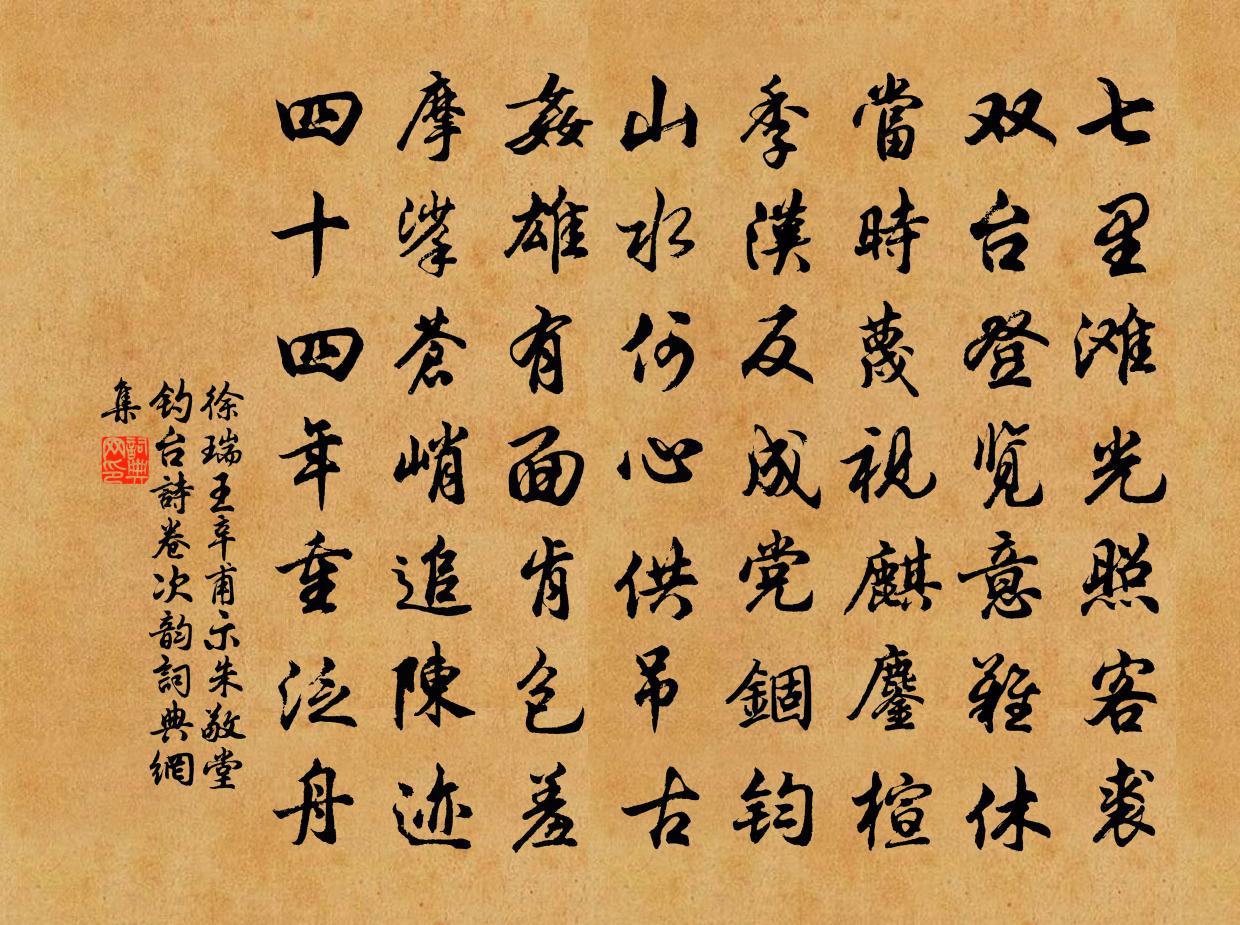 七里滩光照客裘
双台登览意難休
當時蔑視麒鏖楦
季漢反成党錮钧
山水何心供吊古
姦雄有面肯包羞
摩挲蒼峭追陳迹
四十四年重泛舟
徐瑞王辛甫示朱敬堂
钓台詩卷次韵詞典網
集